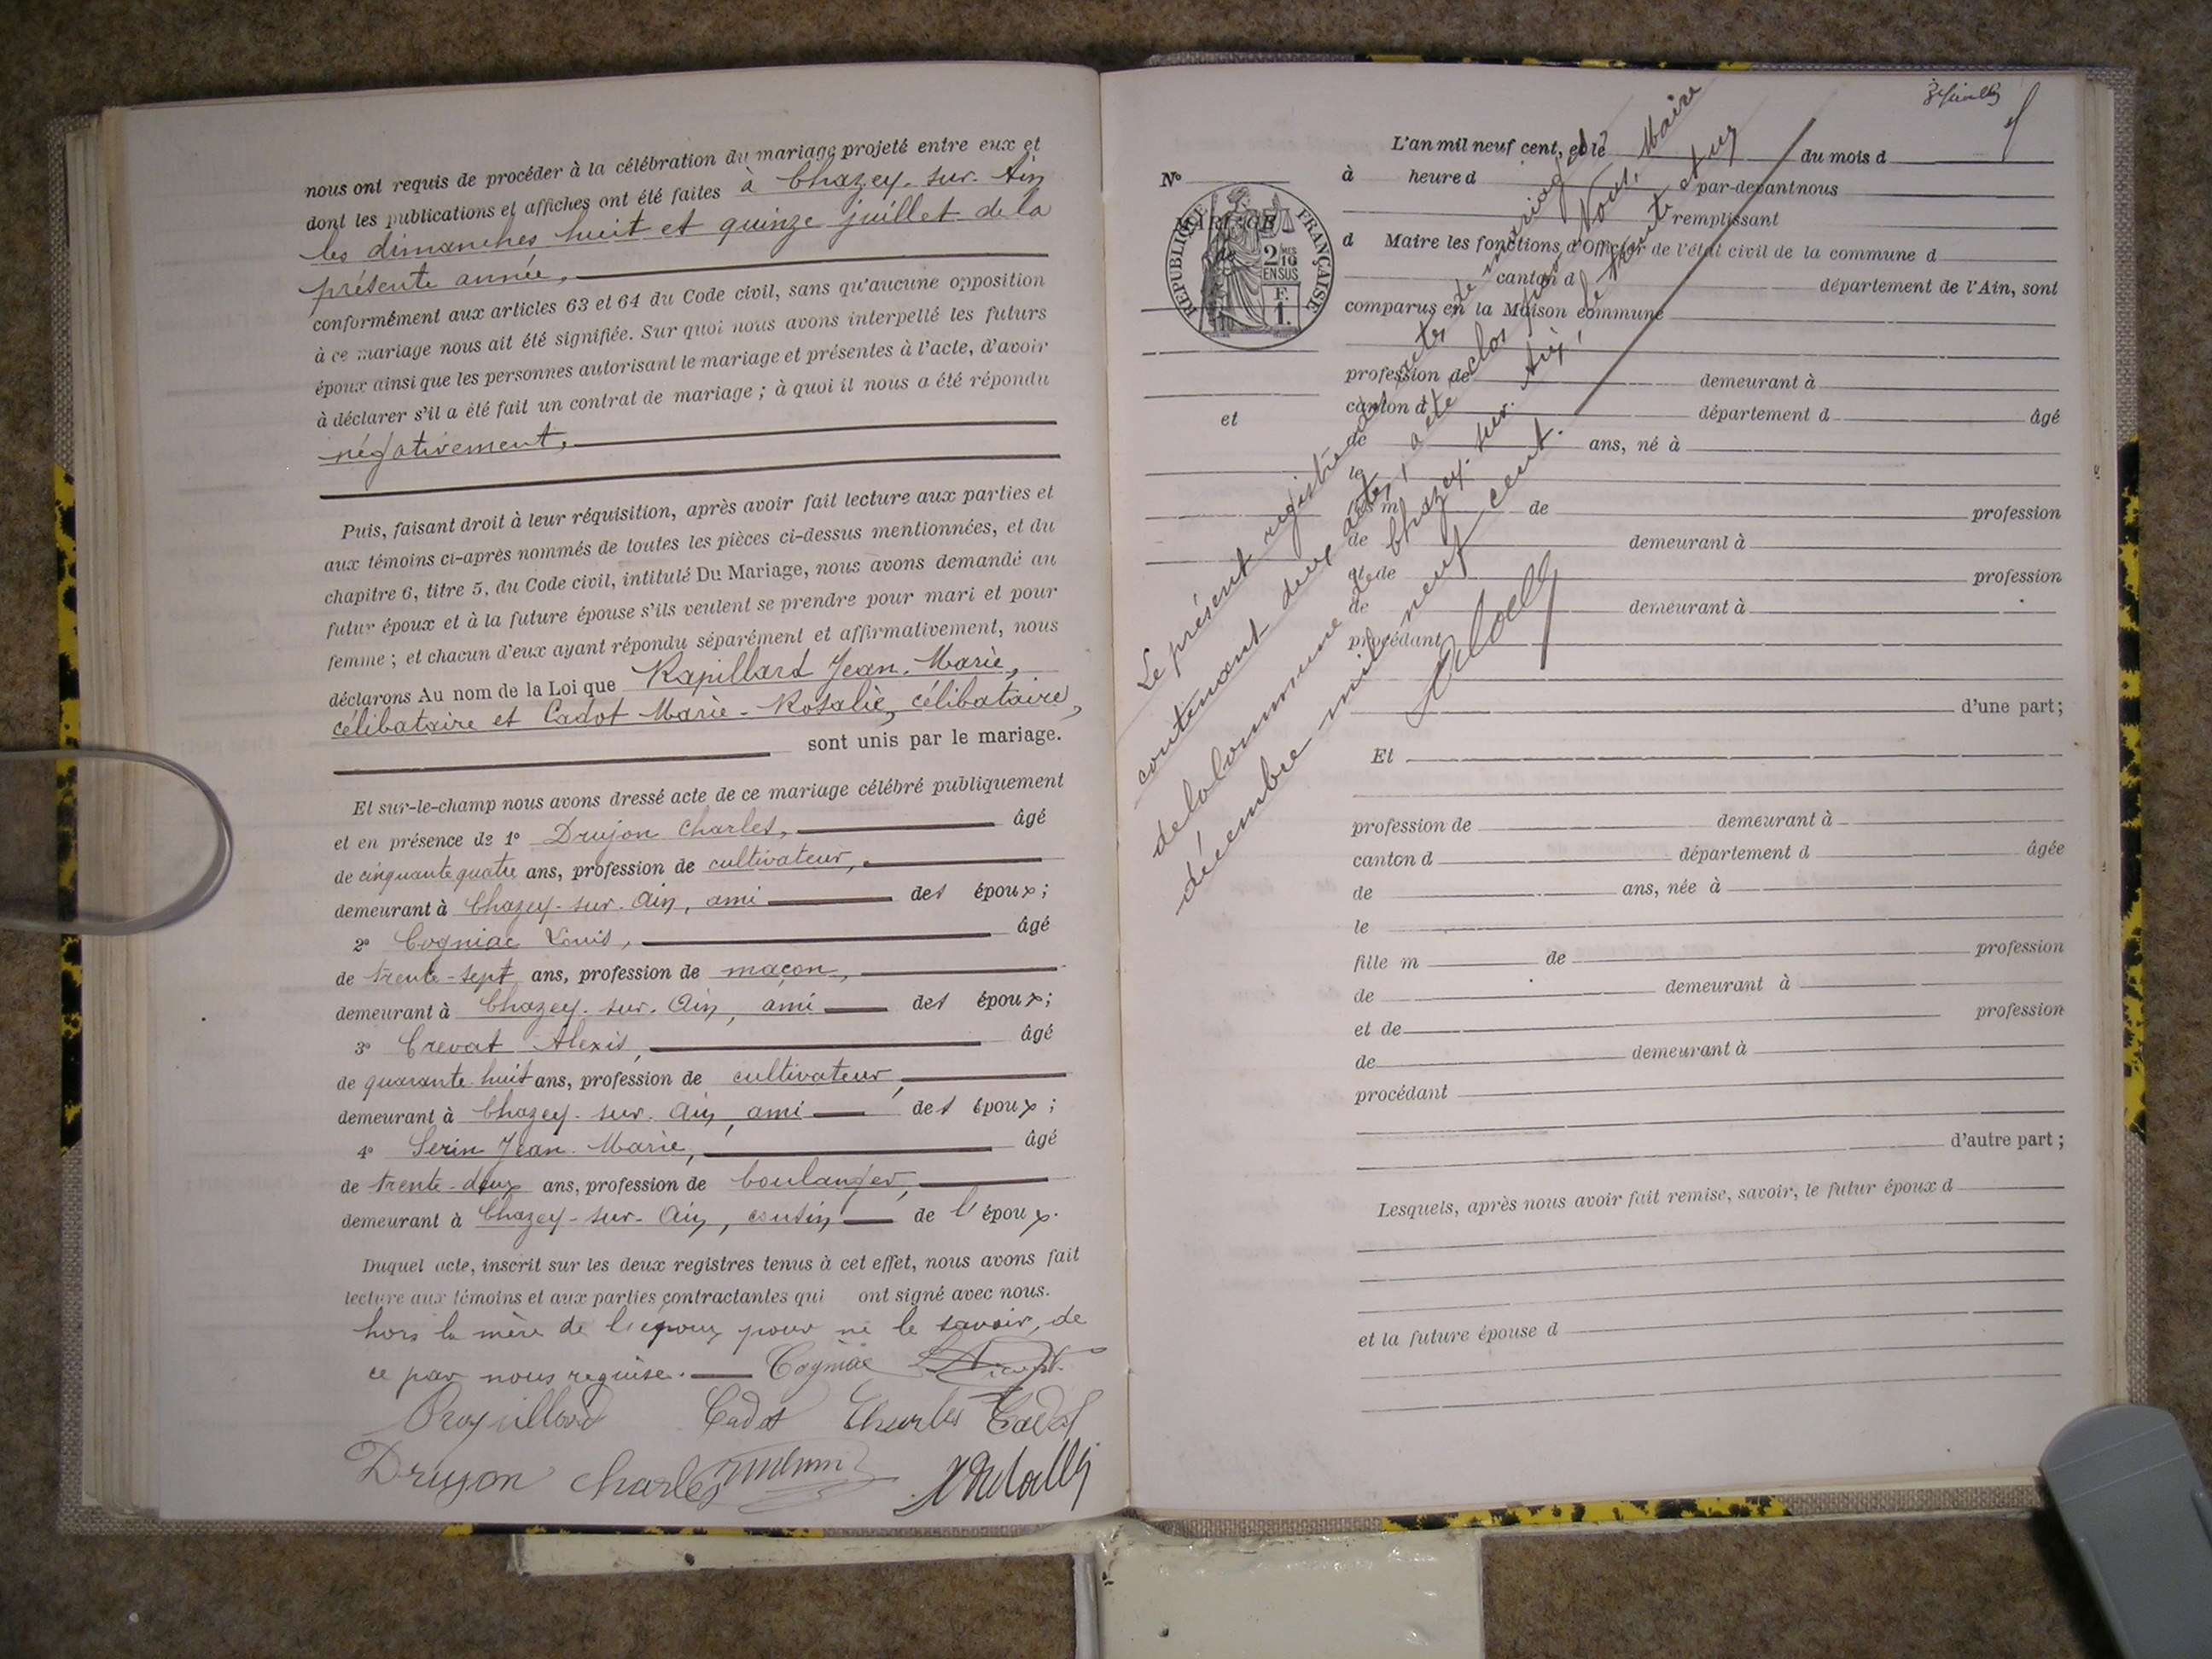 nous ont requis de procéder à la célébration du mariage projeté entre eux et
dont les publications et affiches ont été faites à Chazey-sur-Ain
les dimanches huit et quinze juillet de la
présente année,
conformément aux articles 63 et 64 du Code civil, sans qu'aucune opposition
à ce mariage nous ait été signifiée. Sur quoi nous avons interpellé les futurs
époux ainsi que les personnes autorisant le mariage et présentes à l'acte, d'avoir
à déclarer s'il a été fait un contrat de mariage ; à quoi il nous a été répondu
négativement,
Puis, faisant droit à leur réquisition, après avoir fait lecture aux parties et
aux témoins ci-après nommés de toutes les pièces ci-dessus mentionnées, et du
chapitre 6, titre 5, du Code civil, intitulé Du Mariage, nous avons demandé au
futur époux et à la future épouse s'ils veulent se prendre pour mari et pour
femme ; et chacun d'eux ayant répondu séparément et affirmativement, nous
déclarons Au nom de la Loi que Rapillard Jean-Marie,
célibataire et Cadot Marie-Rosalie, célibataire,
sont unis par le mariage.
Et sur-le-champ nous avons dressé acte de ce mariage célébré publiquement
et en présence de 1° Drujon Charles, âgé
de cinquante quatre ans, profession de cultivateur,
demeurant à Chazey-sur-Ain, ami des époux ;
2° Cogniac Louis, âgé
de trente-sept ans, profession de maçon,
demeurant à Chazey-sur-Ain, ami des époux;
3° Crevat Alexis, âgé
de quarante huit ans, profession de cultivateur,
demeurant à Chazey-sur-Ain, ami des époux ;
4° Serin Jean-Marie, âgé
de trente-deux ans, profession de boulanger,
demeurant à Chazey-sur-Ain, cousin de l'époux.
Duquel acte, inscrit sur les deux registres tenus à cet effet, nous avons fait
lecture aux témoins et aux parties contractantes qui ont signé avec nous.
hors la mère de l'époux pour ne le savoir, de
ce par nous requise. Cogniac
Rapillard Cadot Charles Cadot
Drujon Charles
N°
MARIAGE
de
RÉPUBLIQUE FRANÇAISE
2/10 MES
EN SUS
F.
1.
et
L'an mil neuf cent, et le du mois d
à heure d par-devant nous
remplissant
d Maire les fonctions d'Officier de l'état civil de la commune d
canton d département de l'Ain, sont
comparus en la Maison commune
profession de demeurant à
canton d département d âgé
de ans, né à
le
fils m de profession
de demeurant à
et de profession
de demeurant à
procédant
d'une part;
Et
profession de demeurant à
canton d département d âgée
de ans, née à
le
fille m de profession
de demeurant à
et de profession
de demeurant à
procédant
d'autre part ;
Lesquels, après nous avoir fait remise, savoir, le futur époux d
et la future épouse d
Le présent registre des actes de mariage
contenant deux actes, a été clos par Nous, Maire
de la Commune de Chazey-sur-Ain, le trente et un
décembre mil neuf cent.